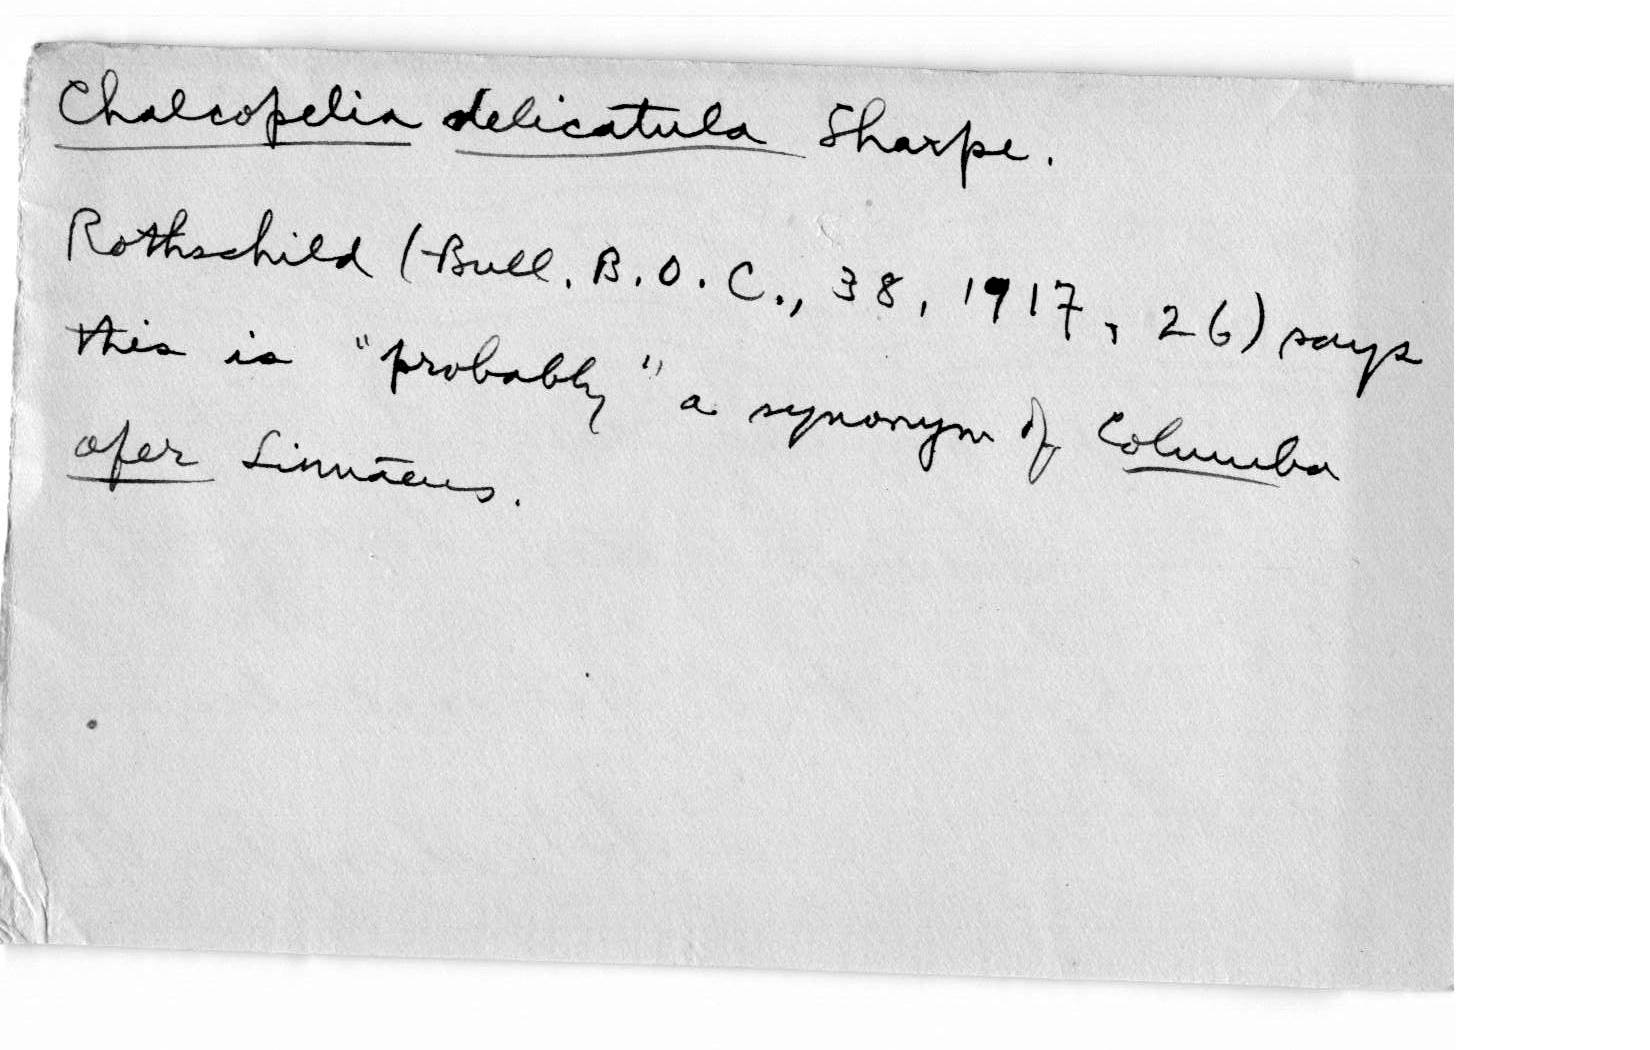 Chalcopelia delicatula Sharpe.
Rothschild (Bull. B.O.C., 38, 1917, 26) says
this is "probably" a synonym of Columba
afer Linnaeus.